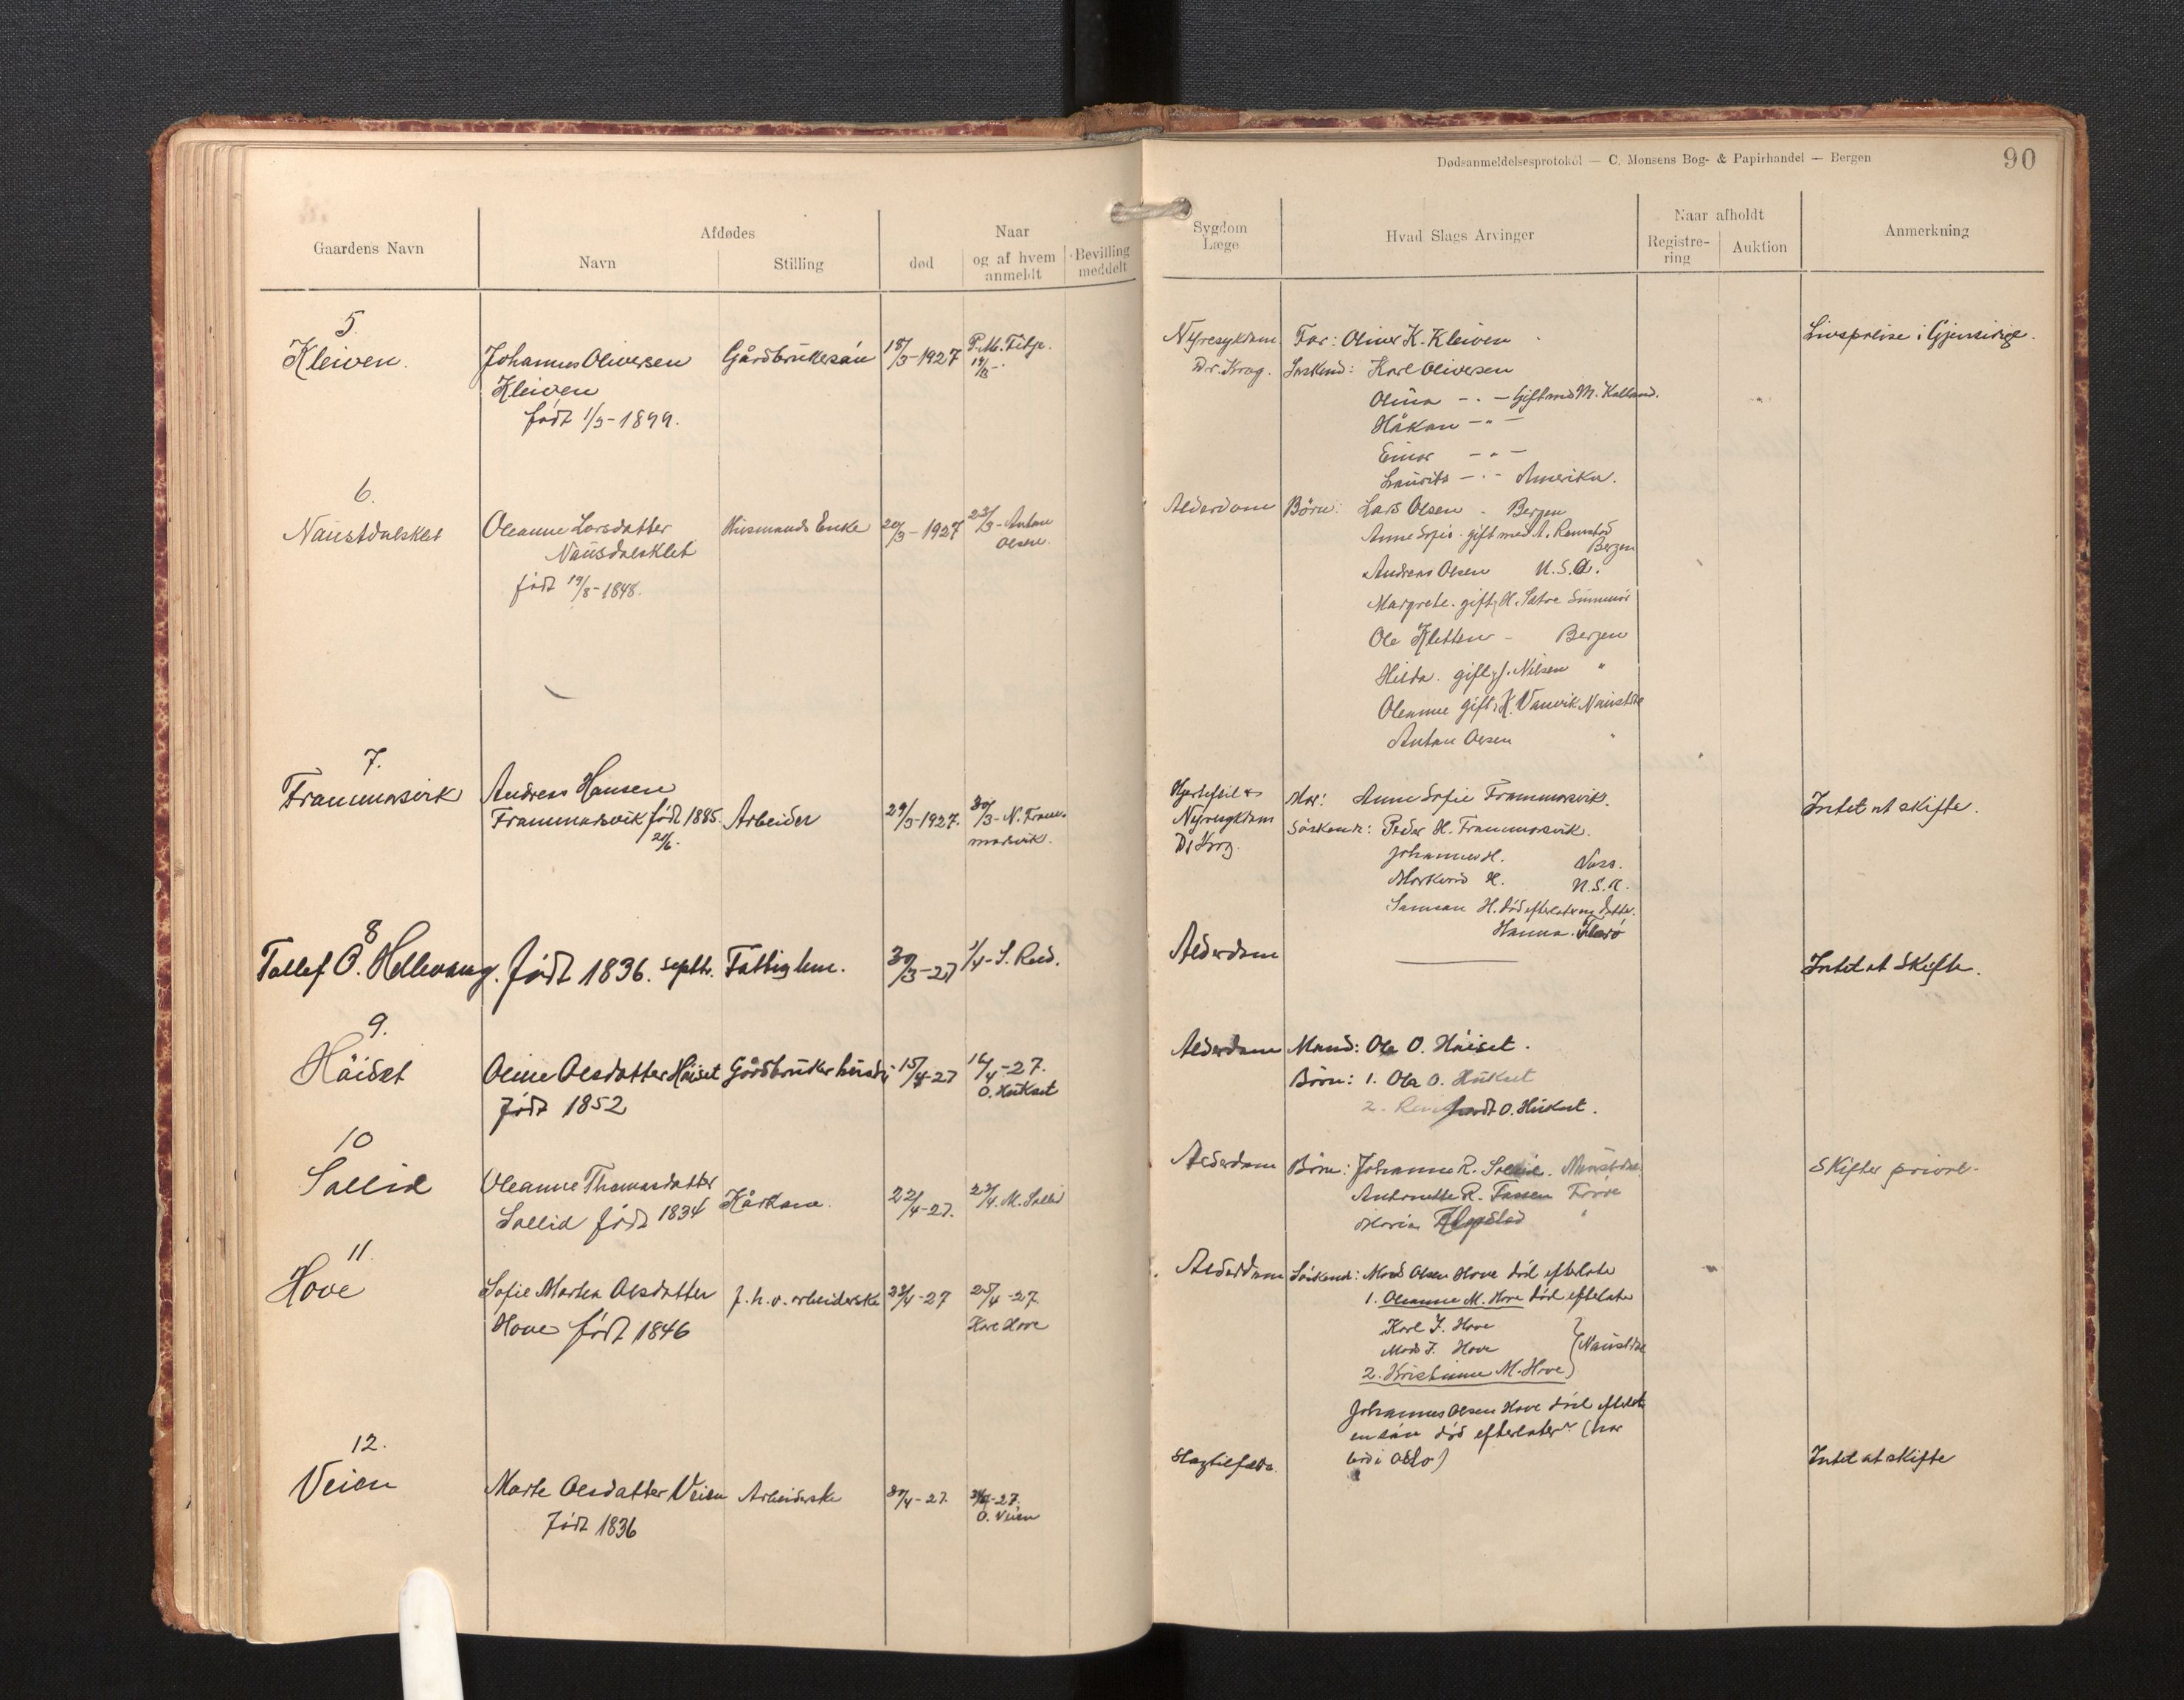 Dødsanmeldelsesprotokol — C. Monsens Bog- & Papirhandel — Bergen
90
Gaardens Navn
Afdødes
Navn
Stilling
Naar
død
og af hvem anmeldt
Bevilling meddelt
Sygdom
Læge
Hvad Slags Arvinger
Naar afholdt
Registre-
ring
Auktion
Anmerkning
5.
Kleiven.
Johannes Oliversen
Kleiven
født 1/3-1899.
Gårdbrukersøn
18/3-1927
Nyresykdom
Dr. Krog.
Far: Oliver K. Kleiven
Søskend: Karl Oliversen
Olina - " - Gift med M. Kalland.
Håkon - " -
Einar - " -
Laurits - " - Amerika.
Livspolise i Gjensidige.
6.
Naustdalsklet
Oleanne Larsdatter
Nausdalsklet
født 19/8-1848.
Husmands Enke
20/3-1927
23/3- Anton
Olsen.
Alderdom
Børn: Lars Olsen - Bergen
Anne Sofie gift med A.
Bergen
Andreas Olsen U.S.A.
Margrete gift H. Sætre Sunmør
Ole Kletten - Bergen
Hilda gift J. Nilsen "
Oleanne gift K. Vanvik Naustdal
Anton Olsen "
7.
Frammarsvik
Andreas Hansen
Frammarsvik født 1885.
21/6.
Arbeider
29/3-1927.
30/3- N. Fram-
marsvik.
Hjertefeil &
Nyresykdom
Dr Krog.
Mor: Anne Sofie Frammarsvik.
Søskend: Peder H. Frammarsvik.
Johannes H. Voss.
H. U.S.A.
Samson H. død efterlater en datter.
Hanna. Florø
Intet at skifte.
8
Tollef O. Hellevang. født 1836. septbr. Fattiglem.
30/3-27
1/4- S. Reed.
Alderdom
Intet at Skifte.
9.
Høiset
Oline Olsdatter Høiset
født 1852
Gårdbrukerhustr.
15/4-27
16/4-27.
O. Hukset
Alderdom
Mand: Ole O. Høiset.
Børn: 1. Ole O. Hukset
2. O. Hukset.
10
Sollid
Oleanne Thomasdatter
Sollid født 1834
Kårkone.
22/4-27.
23/4. M. Sollid
Alderdom
Børn: Johanne R. Sollid. Naustdal
Antonette R. Førde
Maria "
Skifter privat-
11.
Hove
Sofie Marta Olsdatter
Hove født 1846
f. h. v. arbeiderske
23/4-27
25/4-27.
Hove
Alderdom
Søskend: Mads Olsen Hove død efterlate
1. Oleanne M. Hove død efterlate
Karl J. Hove
Mads J. Hove
Naustdal
2. Kristianne M. Hove
Johannes Olsen Hove død efterlot
en søn død efterlater (har
i Oslo)
12.
Veien
Marte Olsdatter Veien
Født 1836
Arbeiderske
30/4-27.
O. Veien
Slagtilfælde.
Intet at skifte